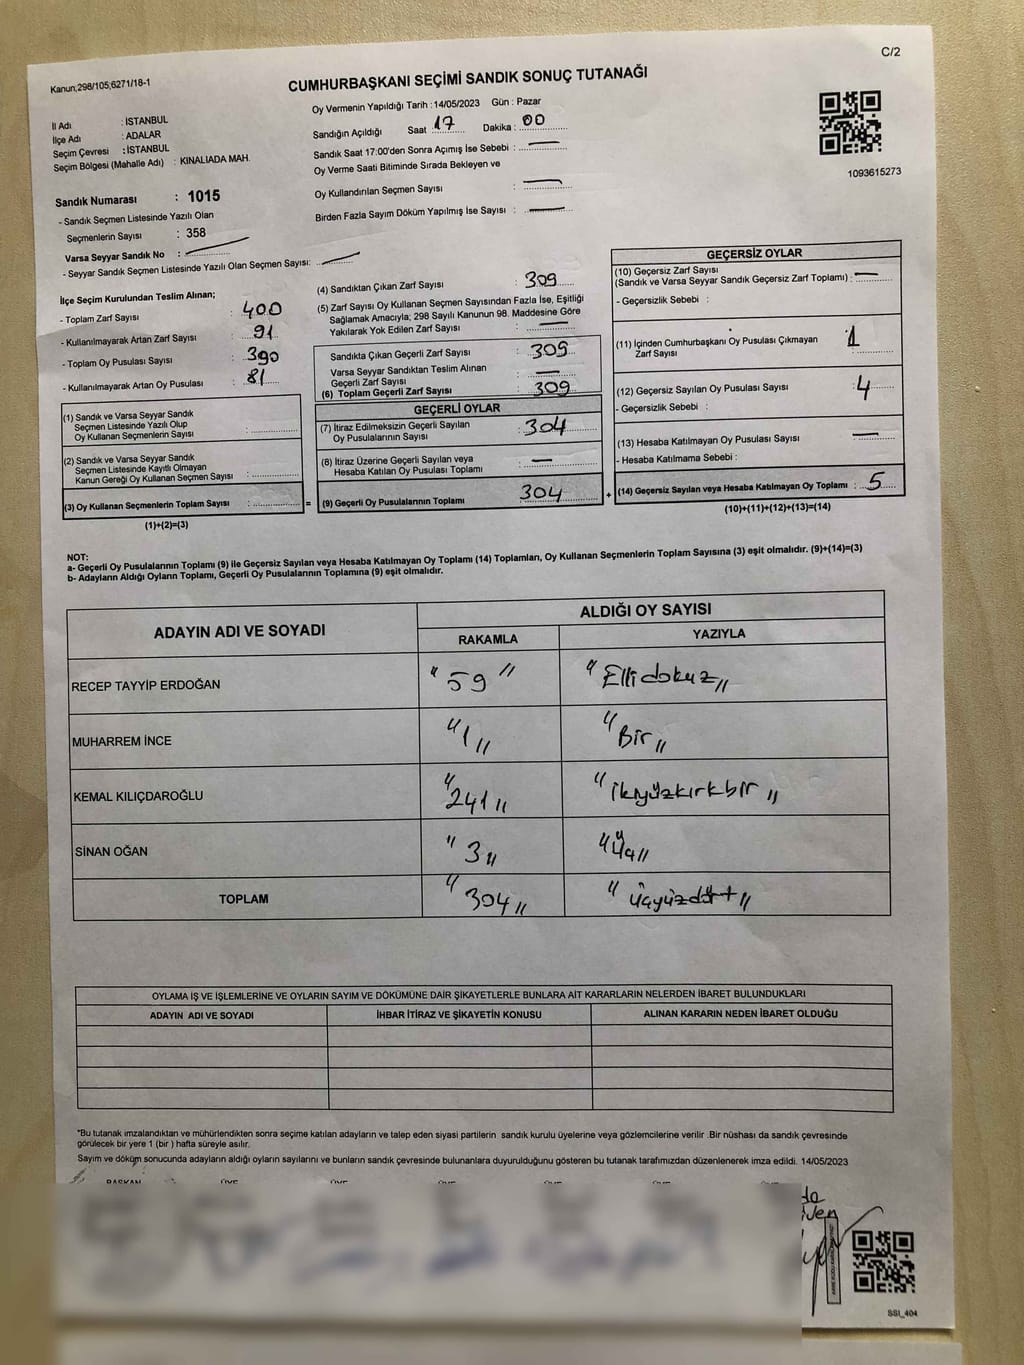 C/2
Kanun,298/105;6271/18-1
CUMHURBAŞKANI SEÇİMİ SANDIK SONUÇ TUTANAĞI
Oy Vermenin Yapıldığı Tarih : 14/05/2023 Gün : Pazar
İl Adı : İSTANBUL
İlçe Adı : ADALAR
Seçim Çevresi : İSTANBUL
Seçim Bölgesi (Mahalle Adı) : KINALIADA MAH.
Sandığın Açıldığı Saat : 17 Dakika : 00
Sandık Saat 17:00'den Sonra Açımış İse Sebebi :
Oy Verme Saati Bitiminde Sırada Bekleyen ve
Oy Kullandırılan Seçmen Sayısı :
Birden Fazla Sayım Döküm Yapılmış İse Sayısı :
1093615273
Sandık Numarası : 1015
- Sandık Seçmen Listesinde Yazılı Olan
Seçmenlerin Sayısı : 358
Varsa Seyyar Sandık No :
- Seyyar Sandık Seçmen Listesinde Yazılı Olan Seçmen Sayısı:
İlçe Seçim Kurulundan Teslim Alınan;
- Toplam Zarf Sayısı : 400
- Kullanılmayarak Artan Zarf Sayısı : 91
- Toplam Oy Pusulası Sayısı : 390
- Kullanılmayarak Artan Oy Pusulası : 81
(1) Sandık ve Varsa Seyyar Sandık
Seçmen Listesinde Yazılı Olup
Oy Kullanan Seçmenlerin Sayısı :
(2) Sandık ve Varsa Seyyar Sandık
Seçmen Listesinde Kayıtlı Olmayan
Kanun Gereği Oy Kullanan Seçmen Sayısı :
(3) Oy Kullanan Seçmenlerin Toplam Sayısı :
(1)+(2)=(3)
=
(4) Sandıktan Çıkan Zarf Sayısı : 309
(5) Zarf Sayısı Oy Kullanan Seçmen Sayısından Fazla İse, Eşitliği
Sağlamak Amacıyla; 298 Sayılı Kanunun 98. Maddesine Göre
Yakılarak Yok Edilen Zarf Sayısı :
Sandıkta Çıkan Geçerli Zarf Sayısı : 309
Varsa Seyyar Sandıktan Teslim Alınan
Geçerli Zarf Sayısı :
(6) Toplam Geçerli Zarf Sayısı : 309
GEÇERLİ OYLAR
(7) İtiraz Edilmeksizin Geçerli Sayılan
Oy Pusulalarının Sayısı : 304
(8) İtiraz Üzerine Geçerli Sayılan veya
Hesaba Katılan Oy Pusulası Toplamı :
(9) Geçerli Oy Pusulalarının Toplamı : 304
+
GEÇERSİZ OYLAR
(10) Geçersiz Zarf Sayısı
(Sandık ve Varsa Seyyar Sandık Geçersiz Zarf Toplamı) :
- Geçersizlik Sebebi :
(11) İçinden Cumhurbaşkanı Oy Pusulası Çıkmayan
Zarf Sayısı : 1
(12) Geçersiz Sayılan Oy Pusulası Sayısı : 4
- Geçersizlik Sebebi :
(13) Hesaba Katılmayan Oy Pusulası Sayısı :
- Hesaba Katılmama Sebebi :
(14) Geçersiz Sayılan veya Hesaba Katılmayan Oy Toplamı : 5
(10)+(11)+(12)+(13)=(14)
NOT:
a- Geçerli Oy Pusulalarının Toplamı (9) ile Geçersiz Sayılan veya Hesaba Katılmayan Oy Toplamı (14) Toplamları, Oy Kullanan Seçmenlerin Toplam Sayısına (3) eşit olmalıdır. (9)+(14)=(3)
b- Adayların Aldığı Oyların Toplamı, Geçerli Oy Pusulalarının Toplamına (9) eşit olmalıdır.
ADAYIN ADI VE SOYADI
ALDIĞI OY SAYISI
RAKAMLA YAZIYLA
RECEP TAYYİP ERDOĞAN "59" "Elli dokuz"
MUHARREM İNCE "1" "Bir"
KEMAL KILIÇDAROĞLU "241" "ikiyüzkırkbir"
SİNAN OĞAN "3" "Üç"
TOPLAM "304" "Üçyüzdört"
OYLAMA İŞ VE İŞLEMLERİNE VE OYLARIN SAYIM VE DÖKÜMÜNE DAİR ŞİKAYETLERLE BUNLARA AİT KARARLARIN NELERDEN İBARET BULUNDUKLARI
ADAYIN ADI VE SOYADI İHBAR İTİRAZ VE ŞİKAYETİN KONUSU ALINAN KARARIN NEDEN İBARET OLDUĞU
*Bu tutanak imzalandıktan ve mühürlendikten sonra seçime katılan adayların ve talep eden siyasi partilerin sandık kurulu üyelerine veya gözlemcilerine verilir .Bir nüshası da sandık çevresinde
görülecek bir yere 1 (bir ) hafta süreyle asılır.
Sayım ve döküm sonucunda adayların aldığı oyların sayılarını ve bunların sandık çevresinde bulunanlara duyurulduğunu gösteren bu tutanak tarafımızdan düzenlenerek imza edildi. 14/05/2023
BAŞKAN ÜYE ÜYE ÜYE ÜYE ÜYE ÜYE
SSI_404